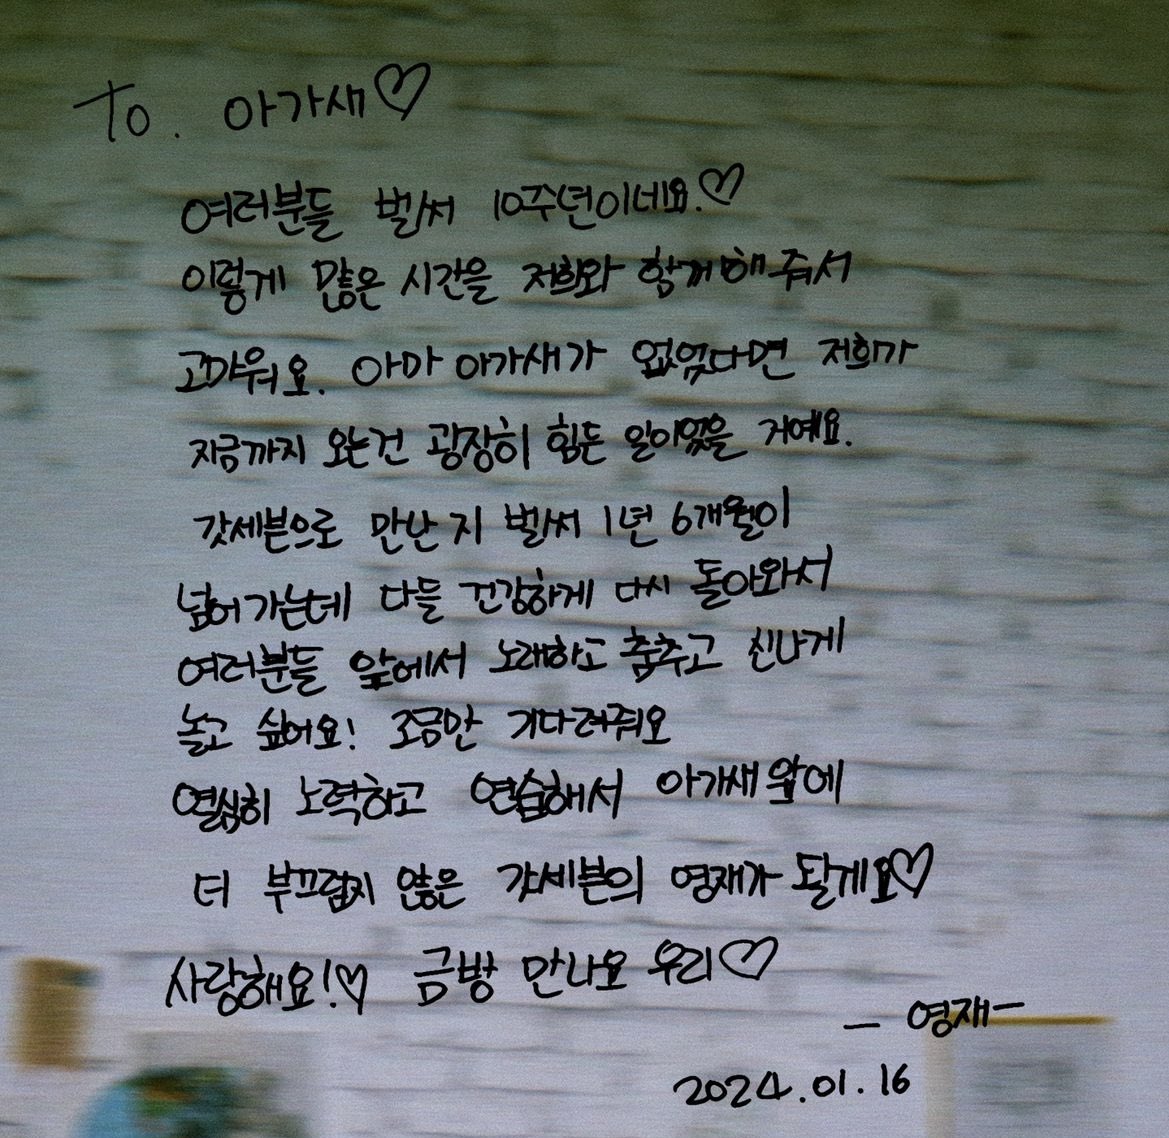 To. 아가새♡
여러분들 벌써 10주년이네요.♡
이렇게 많은 시간을 저희와 함께해줘서
고마워요. 아마 아가새가 없었다면 저희가
지금까지 오는건 굉장히 힘든 일이었을 거예요.
갓세븐으로 만난지 벌써 1년 6개월이
넘어가는데 다들 건강하게 다시 돌아와서
여러분들 앞에서 노래하고 춤추고 신나게
놀고 싶어요! 조금만 기다려줘요
열심히 노력하고 연습해서 아가새앞에
더 부끄럽지 않은 갓세븐의 영재가 될게요♡
사랑해요!♡ 금방 만나요 우리♡
- 영재-
2024.01.16